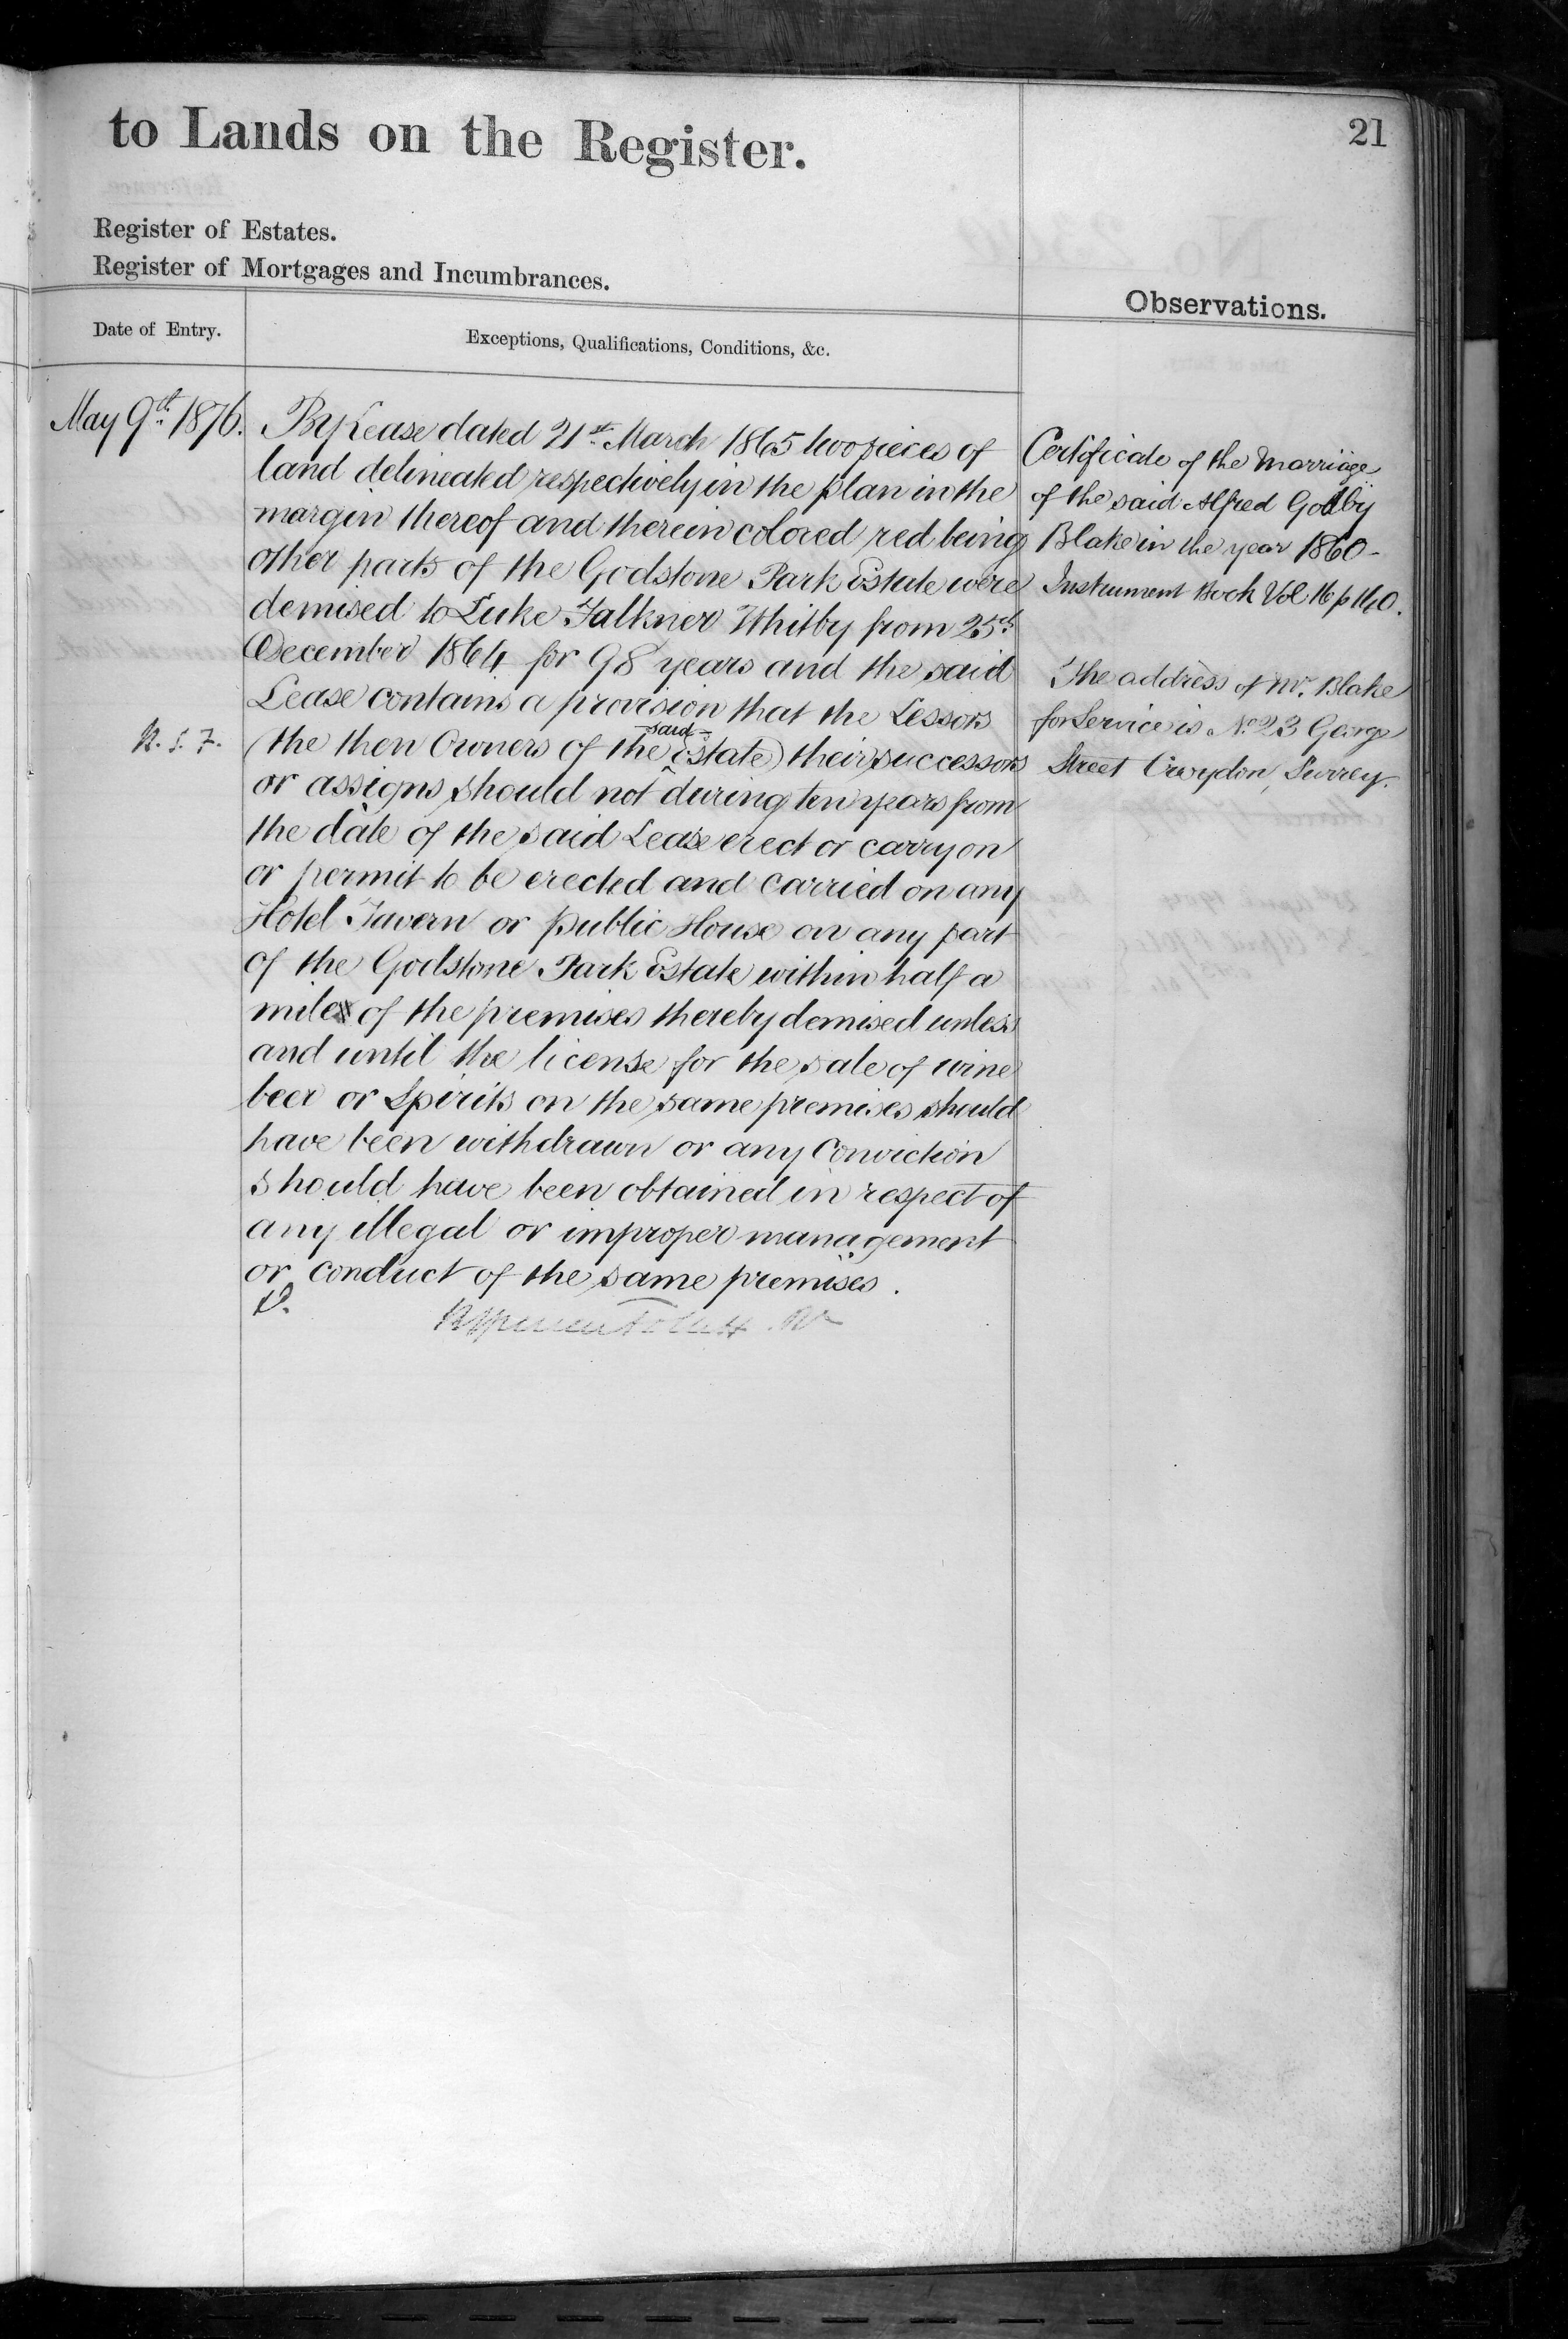 to Lands on the Register.
21
Register of Estates.
Register of Mortgages and Incumbrances.
Observations.
Date of Entry.
Exceptions, Qualifications, Conditions, &c.
May 9th. 1876.
By Lease dated 21st. March 1865 two pieces of
land delineated respectively in the plan in the
margin thereof and therein colored red being
other parts of the Godstone Park Estate were
demised to Luke Falkner Whitby from 25th.
December 1864 for 98 years and the said
Lease contains a provision that the Lessors
(the then Owners of the said Estate) their successors
or assigns should not during ten years from
the date of the said Lease erect or carry on
or permit to be erected and carried on any
Hotel Tavern or public House on any part
of the Godstone Park Estate within half a
mile of the premises thereby demised unless
and until the license for the sale of wine
beer or Spirits on the same premises should
have been withdrawn or any Conviction
should have been obtained in respect of
any illegal or improper management
or conduct of the same premises.
Certificate of the Marriage
of the said Alfred Godby
Blake in the year 1860-
Instrument Book Vol 16 p 140.
The address of Mr. Blake
for Service is No 23 George
Street Croydon, Surrey.